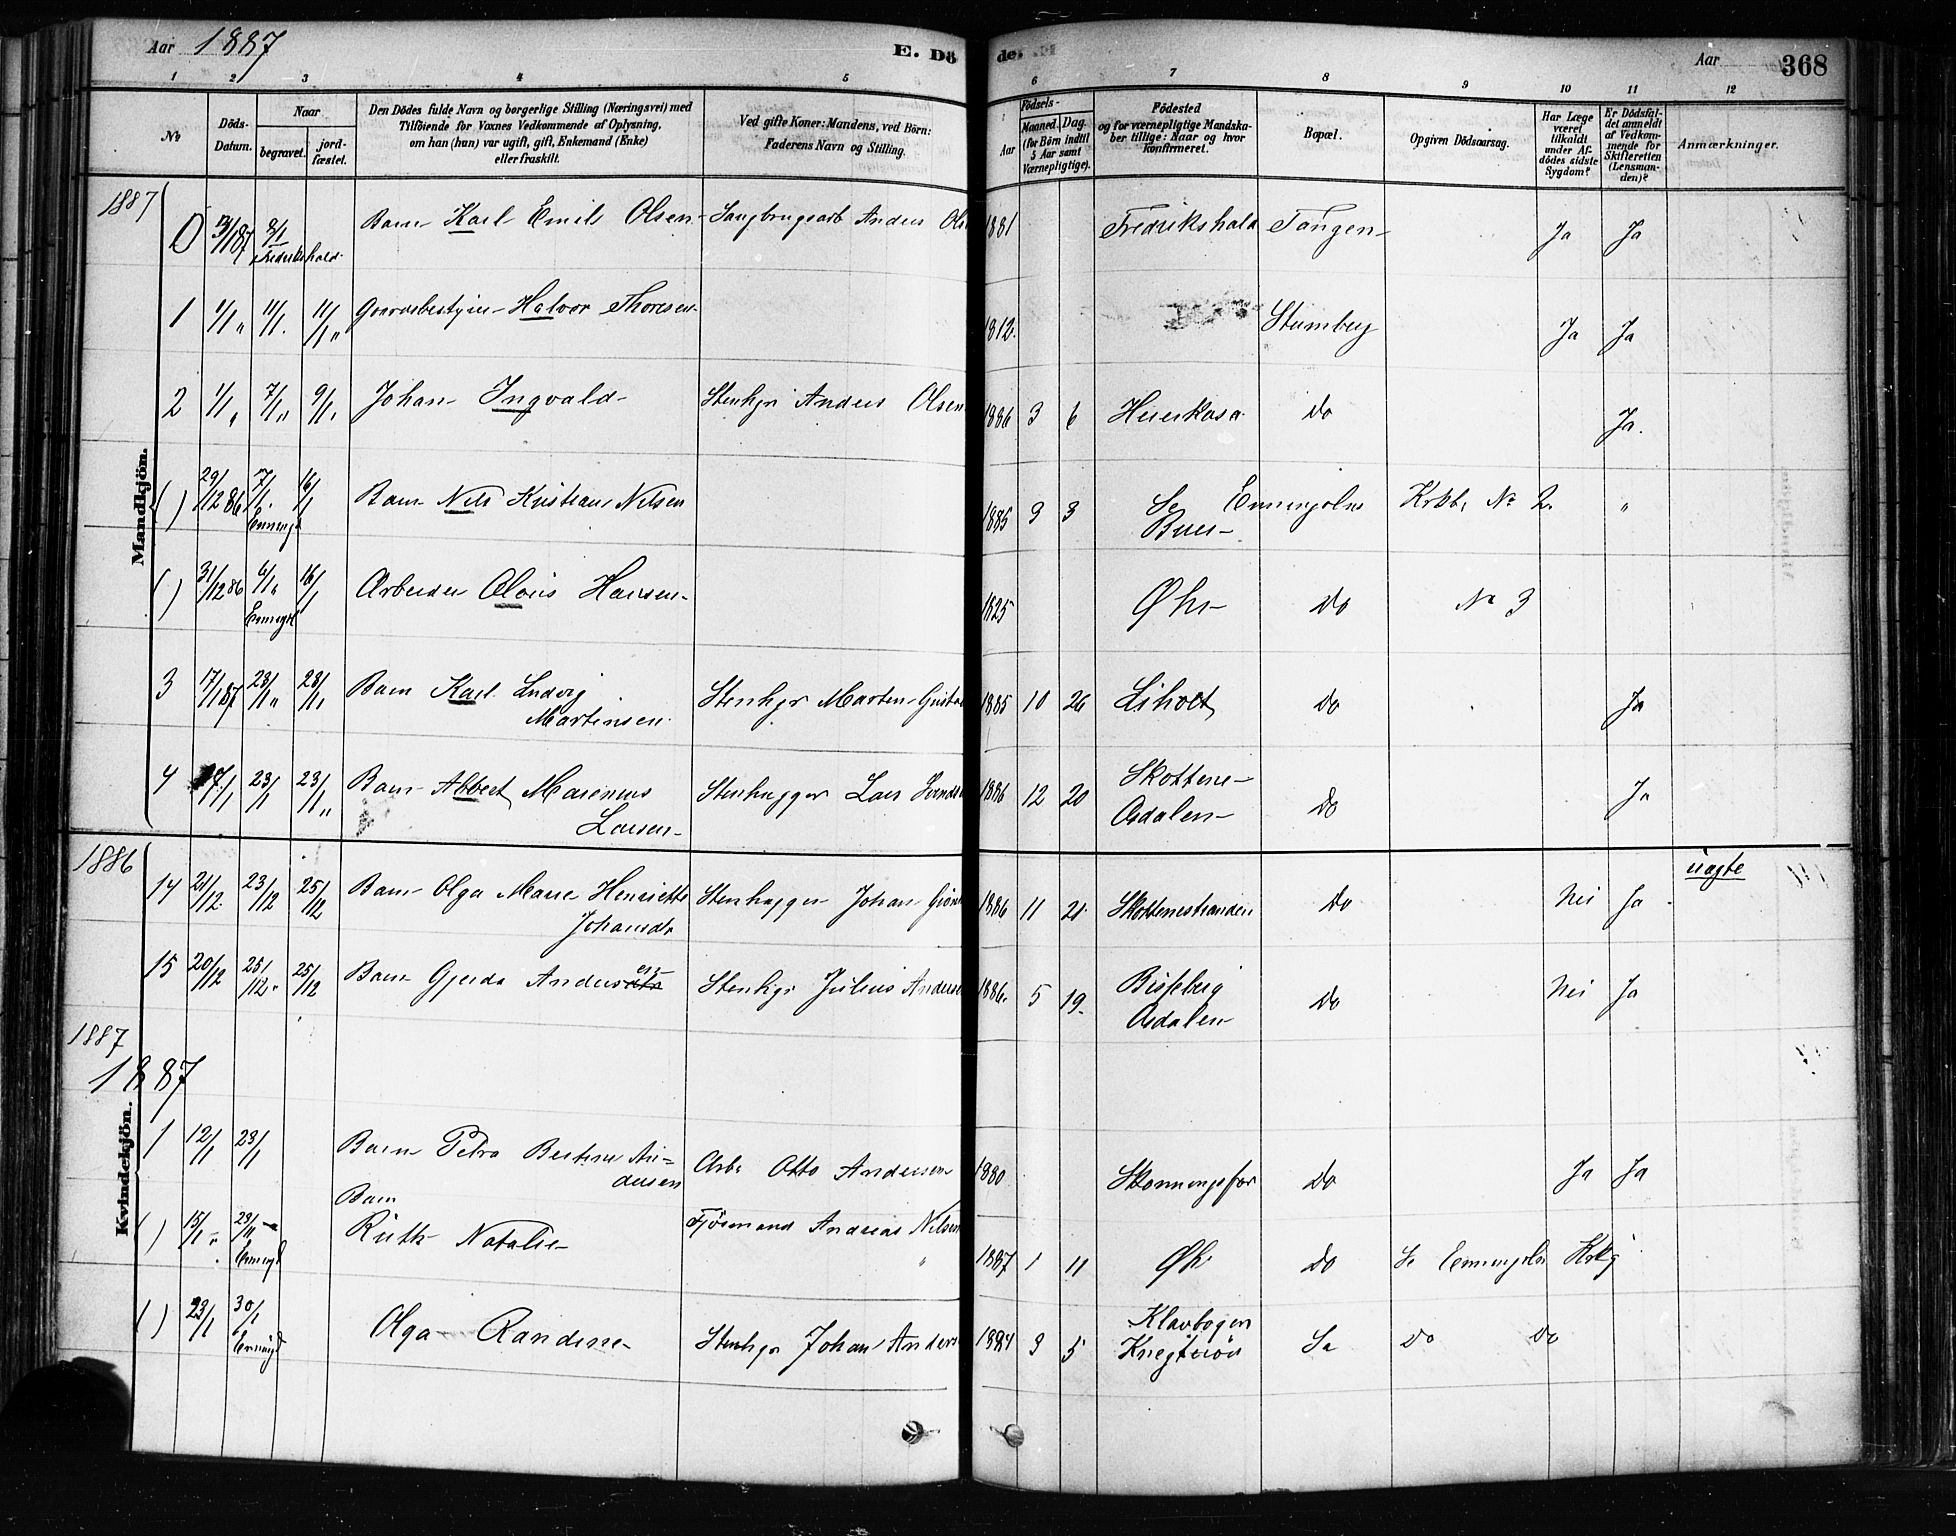 Aar 1887 E. Dö
de. Aar 368
1 2 3 4 5 6 7 8 9 10 11 12
No
Döds-
Datum.
Naar
begravet.
jord-
fæstet.
Den Dödes fulde Navn og borgerlige Stilling (Næringsvei) med
Tilföiende for Voxnes Vedkommende af Oplysning,
om han (hun) var ugift, gift, Enkemand (Enke)
eller fraskilt.
Ved gifte Koner: Mandens, ved Börn:
Faderens Navn og Stilling.
Födsels-
Aar
Maaned. Dag.
(for Börn indtil
5 Aar samt
Værnepligtige).
Födested
og for værnepligtige Mandska-
ber tillige: Naar og hvor
konfirmeret.
Bopæl.
Opgiven Dödsaarsag.
Har Læge
været
tilkaldt
under Af-
dödes sidste
Sygdom?
Er Dödsfal-
det anmeldt
af Vedkom-
mende for
Skifteretten
(Lensman-
den)?
Anmærkninger.
Mandkjön.
1887
0 3/1 87 8/1 Fredrikshald Barn Karl Emils Olsen Saugbrugsarb Anders Ols 1881 Fredrikshald Tangen Ja Ja
1 1/1 " 11/1. 11/1 " Gaardsbestyrer Halvor Thoresen 1812. Stumberg Ja Ja
2 1/1 " 7/1 " 9/1 " Johan Ingvald Stenhgr Anders Olsen 1886 3 6 Do Ja.
( ) 29/12 86 7/1. 16/1 Barn Nils Kristian Nilsen 1885 9 3 Se Enningdalens Krkb. No 2.
Buer "
( ) 31/12 86 6/1 " 16/1 Arbeider Hansen 1825 Do No 3
3 17/1 87 23/1 " 23/1 " Barn Karl Ludvig
Martinsen Stenhgr Marten Gustav 1885 10 26 Liholt Do Ja
4 17/1 23/1 23/1 " Barn Albert Marenius
Larsen Stenhugger Lars 1886 12 20 Skottene
Asdalen Do Ja
1886
14 21/12. 23/12 25/12 Barn Olga Marie Henriette
Johansdr Stenhugger Johan 1886 11 21 Skottenestranden Do Nei Ja uægte
15 20/12 25/12. 25/12 Barn Gjerda Andersen Stenhgr Julius Anderse 1886. 5 19. Bisseberg
Asdalen Do Nei Ja
1887
1887
Kvindekjön.
1 12/1 23/1 Barn Petra Bertine An=
dersen Arb. Otto Andersen 1880 Skonningsfos Do Ja Ja
( ) 15/1 " 23/1 Barn
Ruth Natalie Fjösmand Andreas Nilsen 1887 1 11 Do Se Enningdalens Krkg
( ) 23/1 30/1 Olga Randine Stenhgr Johan Anders 1884 9 5 Klavbogen
Do Do